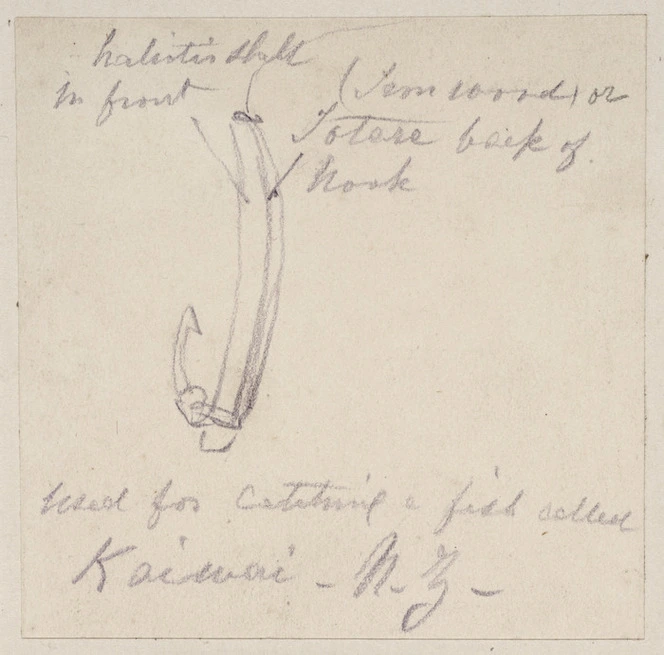 haliotis shell
in front
(Iron wood) or
Totara back of
hook
Used for catching a fish called
Kaiwai - N. Z -